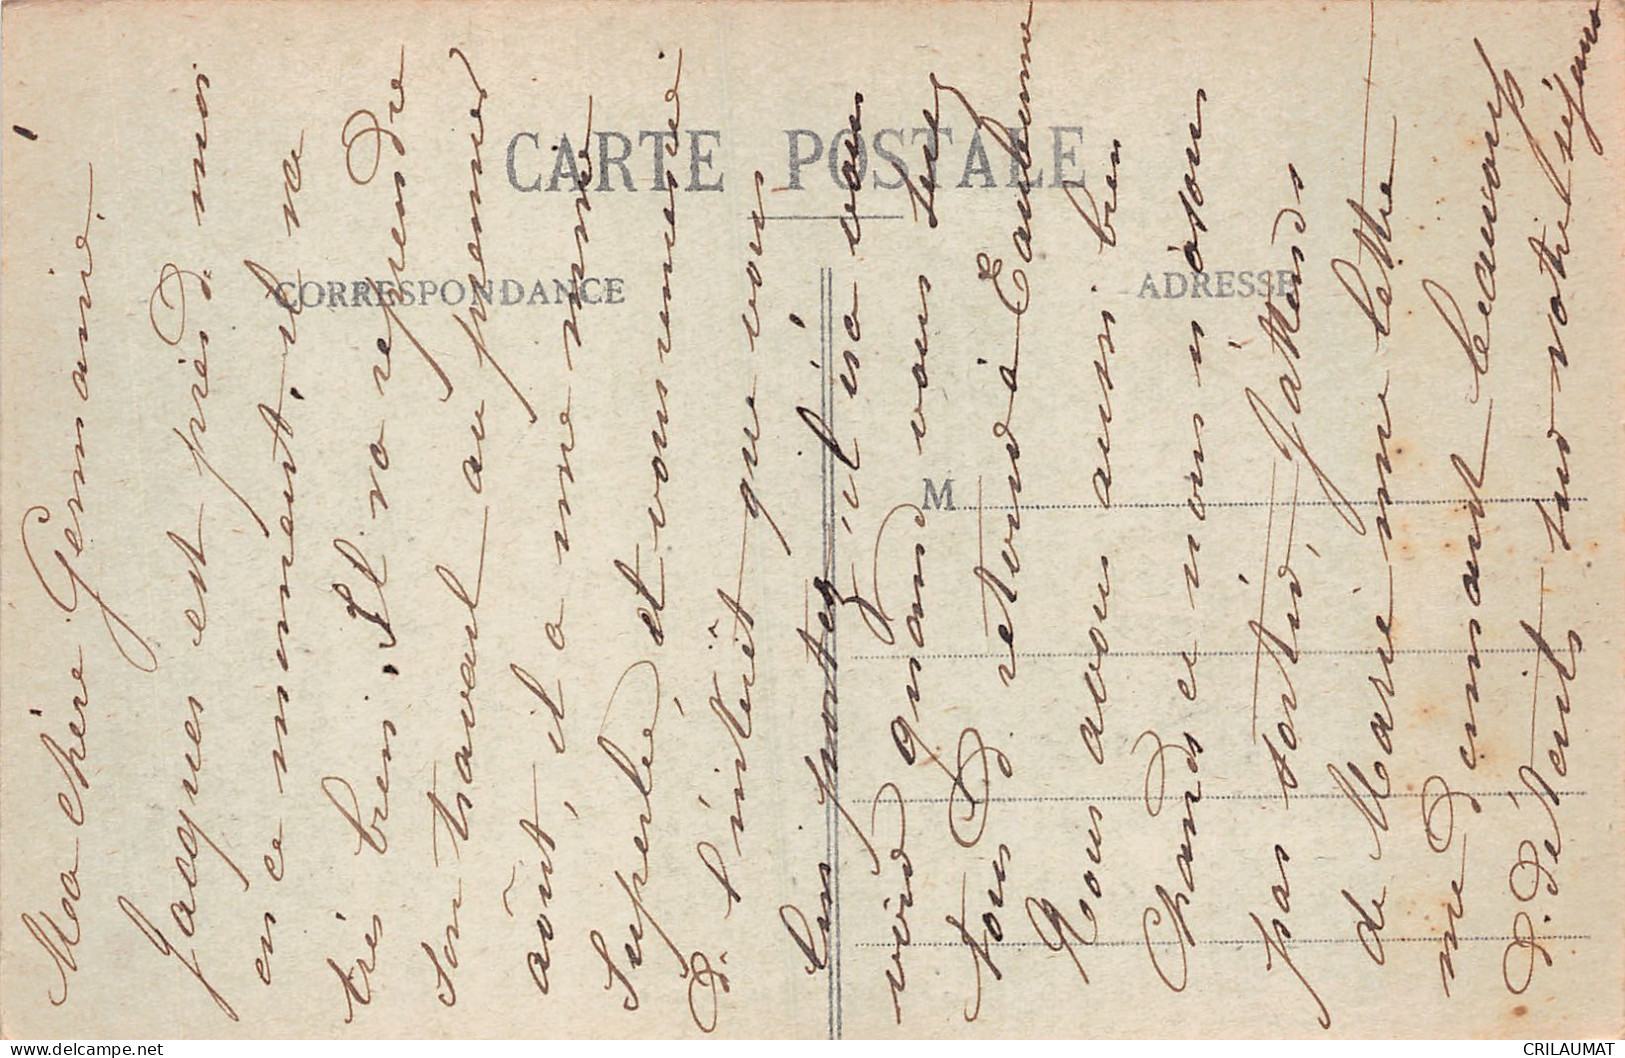 CARTE POSTALE
CORRESPONDANCE
ADRESSE
M
Ma chère Germaine.
Jacques est près d moi
en ce moment, il va
très bien. Il va reprendre
son travail au premier
août, il a une mine
superbe et vous remercie
d. l'intérêt que vous
lui portez, il ira vous
voir quand vous serez
tous d retour à Eaubonne
Nous avons aussi bien
chaud ce nous n'
pas sortir, J'attends
de Marie une lettre
me d beaucoup
d. détails sur votre séjour
CRILAUMAT